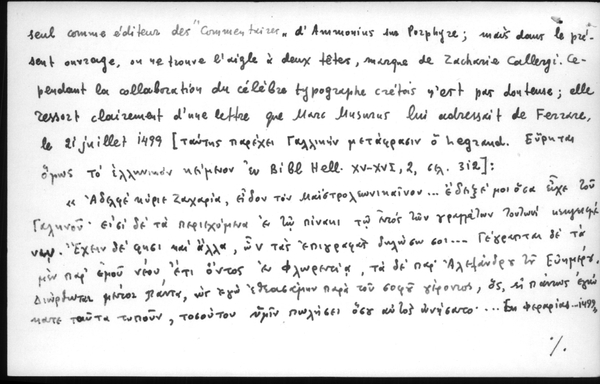 seul comme éditeur des "Commentaires" d'Ammonius sur Porphyre; mais dans le pré-
sent ouvrage, on ne trouve l'aigle à deux têtes, marque de Zacharie Callergi. Ce-
pendant la collaboration du célèbre typographe crétois n'est pas douteuse; elle
ressort clairement d'une lettre que Marc Musurus lui adressait de Ferrare,
le 21 juillet 1499 [ταύτης παρέχει Γαλλικὴν μετάφρασιν ὁ Legrand. Εὕρηται
ὅμως τὸ ἑλληνικὸν κείμενον ἐν Bibl Hell. XV-XVI, 2, σελ. 312]:
« Ἀδελφὲ κύριε Ζαχαρία, εἶδον τὸν Μαϊστρολεωνικαῖνον... ἔδειξέ μοι ὅσα εἶχε τοῦ
Γαληνοῦ· εἰσὶ δὲ τὰ περιεχόμενα ἐν τῷ πίνακι τῷ ἐντὸς τῶν γραμμάτων τουτωνὶ
. Ἔχειν δέ φησι καὶ ἄλλα, ὧν τὰς ἐπιγραφὰς δηλώσω σοι... Γέγραπται δὲ τὰ
μὲν παρ' ἐμοῦ νέου ἔτι ὄντος ἐν Φλωρεντίᾳ, τὰ δὲ παρ' Ἀλεξάνδρου τοῦ
Διώρθωται μέντοι πάντα, ὡς ἐγὼ ἐθεασάμην παρὰ τοῦ σοφοῦ γέροντος, ὅς, εἰ πάντως
ταῦτα τυποῦν, τοσούτου ὑμῖν πωλήσει ὅσου αὐτὸς ὠνήσατο... Ἐκ Φεραρίας...1499»
./.